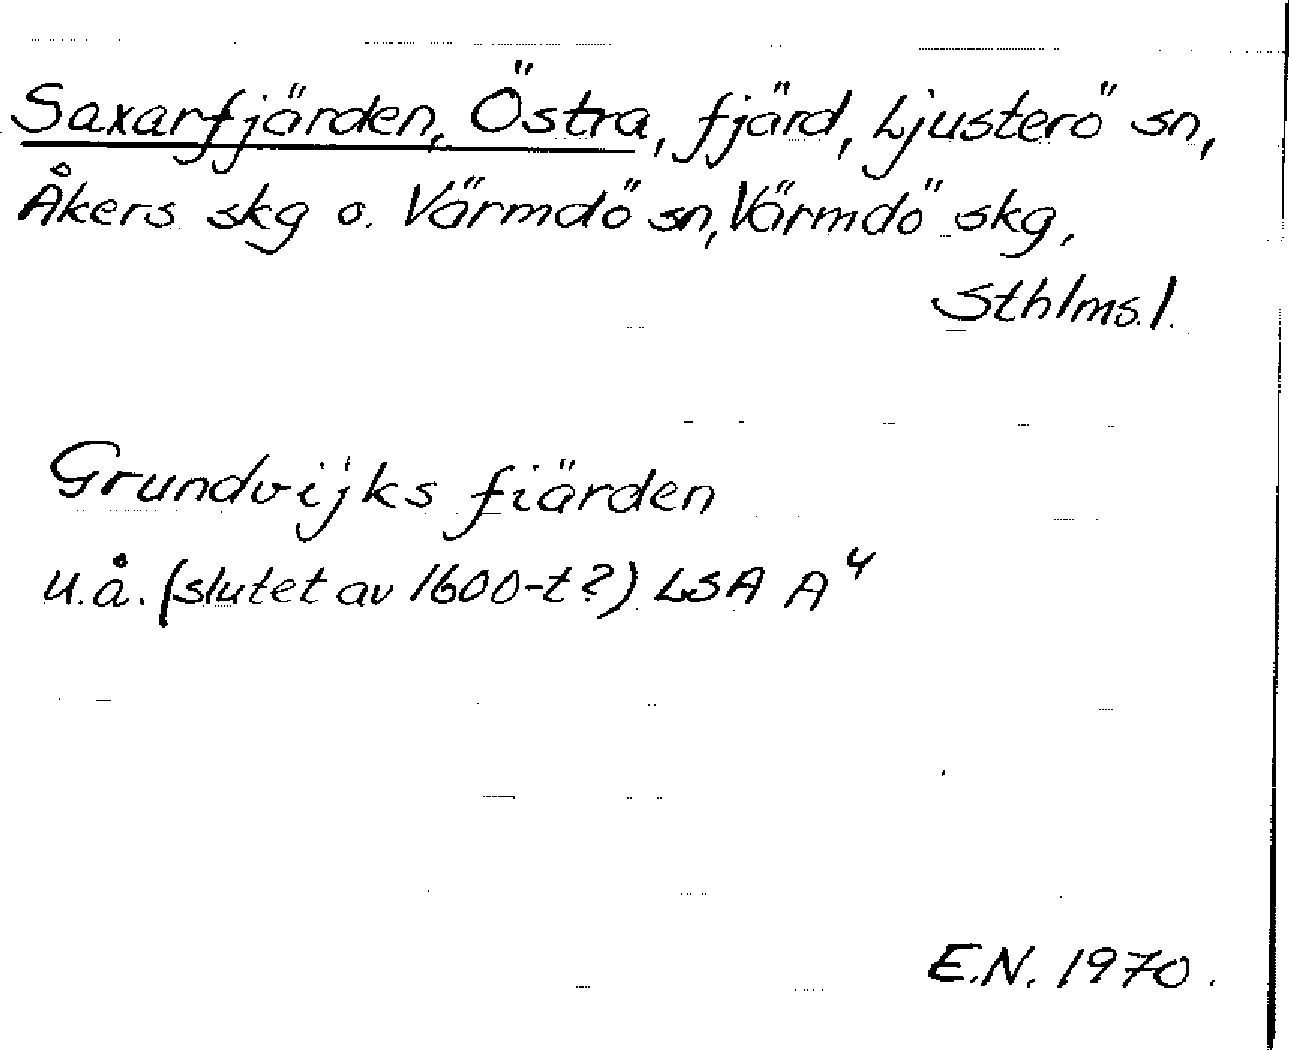 Saxarfjärden, Östra, fjärd, Ljusterö sn,
Åkers skg o. Värmdö sn, Värmdö skg,
Sthlms. l.
Grundvijks fiärden
u.å. (slutet av 1600-t?) LSA A⁴
E.N. 1970.